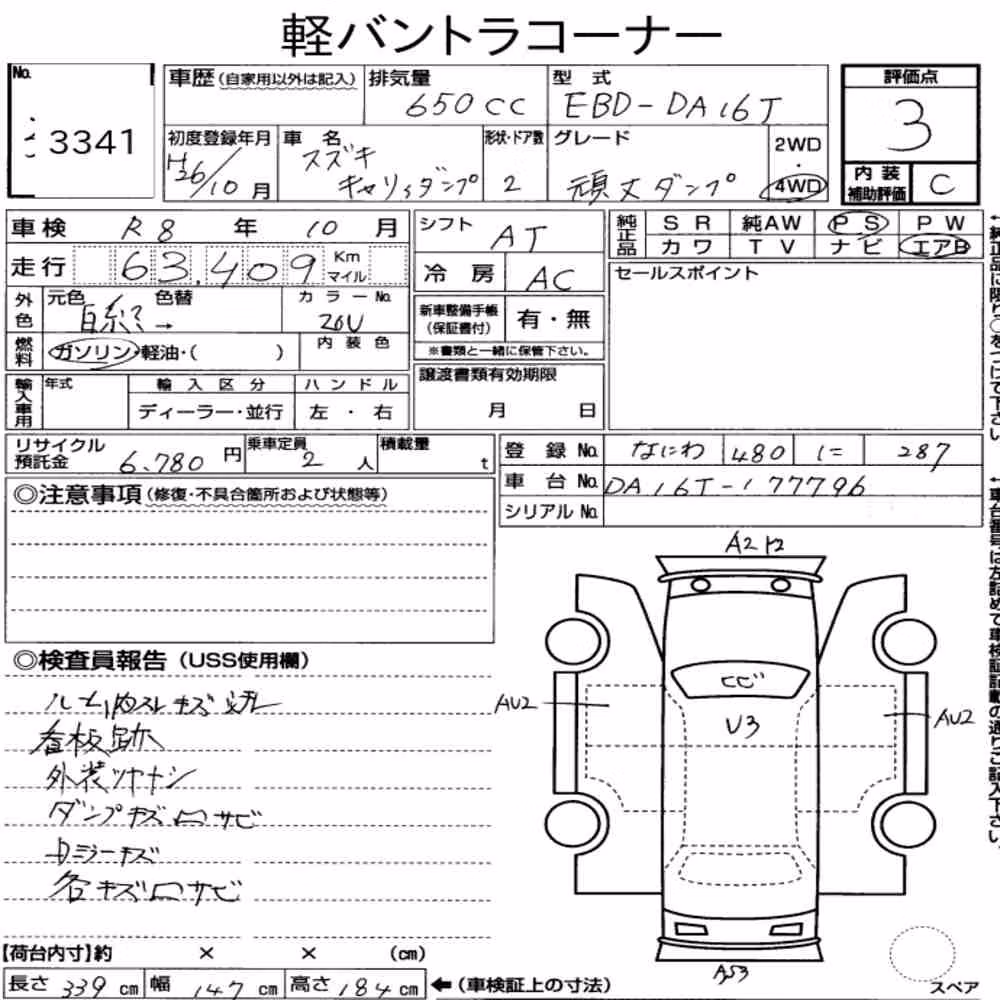 軽バントラコーナー
No.
3341
車歴(自家用以外は記入)
排気量
650cc
型式
EBD-DA16T
評価点
3
内装補助評価
C
初度登録年月
H26/10月
車名
スズキ
キャリィダンプ
形状・ドア数
2
グレード
頑丈ダンプ
2WD
・
4WD
車検 R8年10月
走行 63,409 Km マイル
外色
元色
色替
白系
→
カラーNo.
26U
燃料
ガソリン・軽油・( )
内装色
輸入車用
年式
輸入区分
ディーラー・並行
ハンドル
左・右
シフト
AT
冷房
AC
新車整備手帳
(保証書付)
有・無
※書類と一緒に保管下さい。
譲渡書類有効期限
月 日
純正品
SR 純AW PS PW
カワ TV ナビ エアB
セールスポイント
←純正品に限り○をつけて下さい。
リサイクル預託金
6.780円
乗車定員
2人
積載量
t
登録No. なにわ 480 に 287
車台No. DA16T-177796
シリアルNo.
←車台番号は左詰めで車検証記載の通りご記入下さい。
◎注意事項(修復・不具合箇所および状態等)
◎検査員報告(USSS使用欄)
看板跡
外装ツヤナシ
ダンプキズ凹サビ
ミラーキズ
各キズ凹サビ
A2
AU2
U3
AU2
【荷台内寸】約 × × (cm)
長さ 339 cm 幅 147 cm 高さ 184 cm ←(車検証上の寸法)
スペア